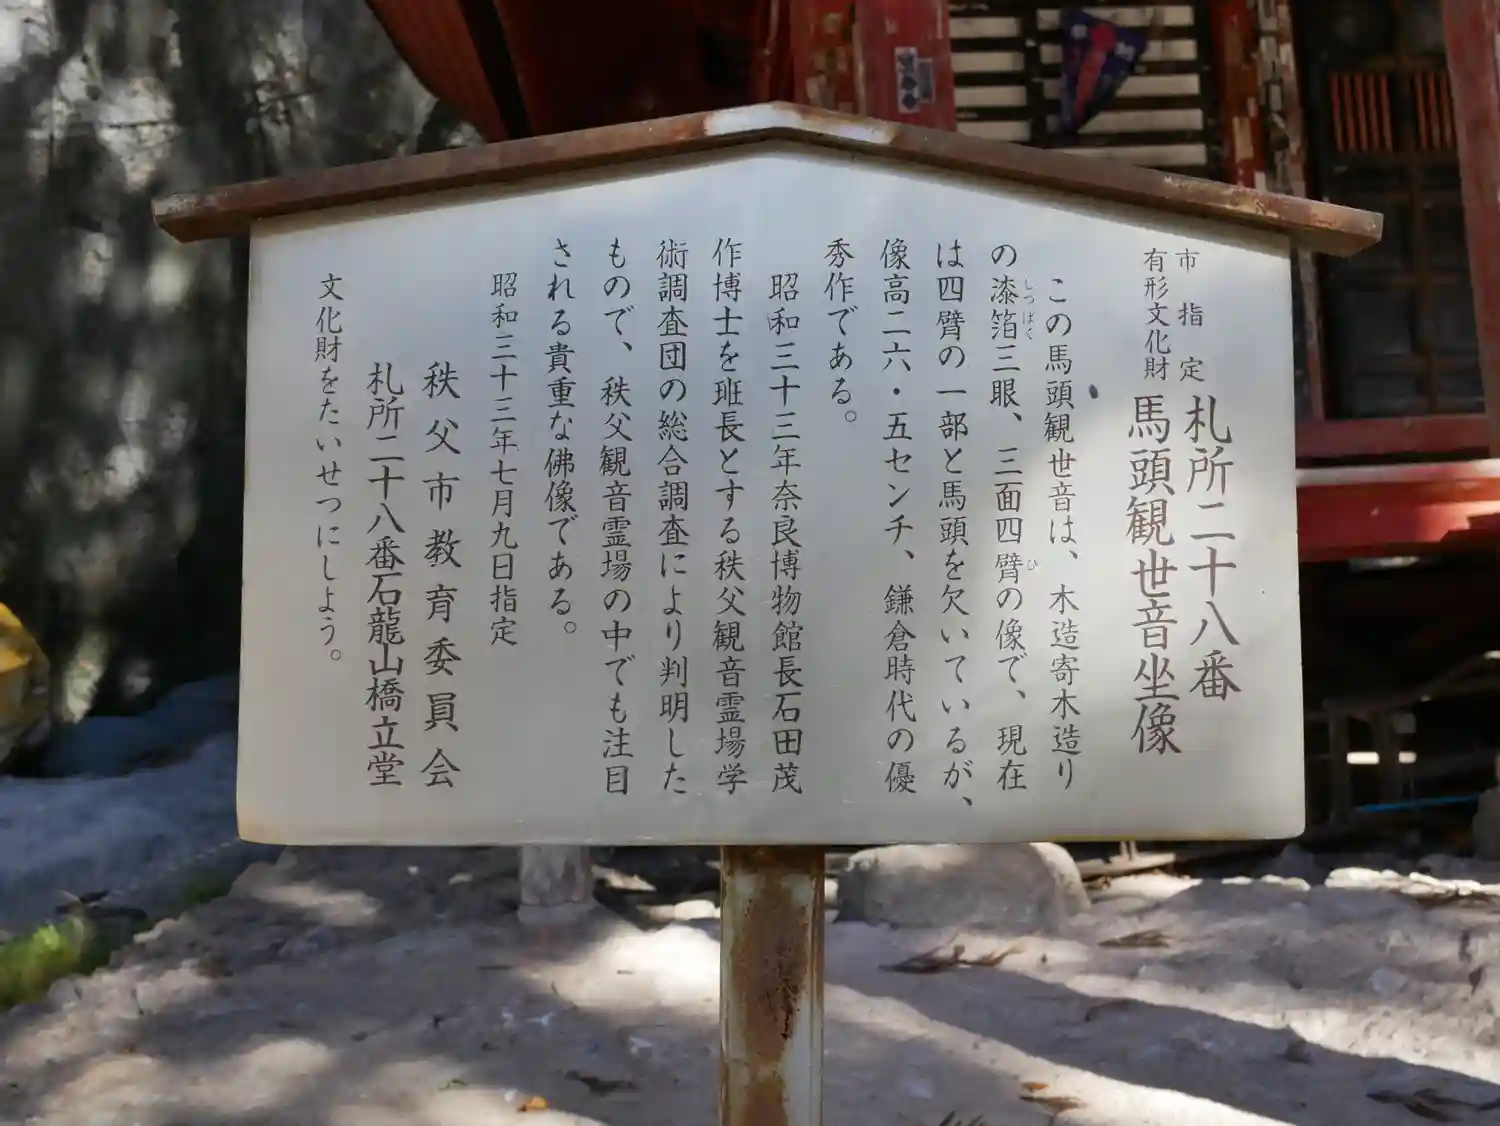 市指定
有形文化財
札所二十八番
馬頭観世音坐像
この馬頭観世音は、木造寄木造り
の漆箔三眼、三面四臂の像で、現在
しつはく
ひ
は四臂の一部と馬頭を欠いているが、
像高二六・五センチ、鎌倉時代の優
秀作である。
昭和三十三年奈良博物館長石田茂
作博士を班長とする秩父観音霊場学
術調査団の総合調査により判明した
もので、秩父観音霊場の中でも注目
される貴重な佛像である。
昭和三十三年七月九日指定
秩父市教育委員会
札所二十八番石龍山橋立堂
文化財をたいせつにしよう。